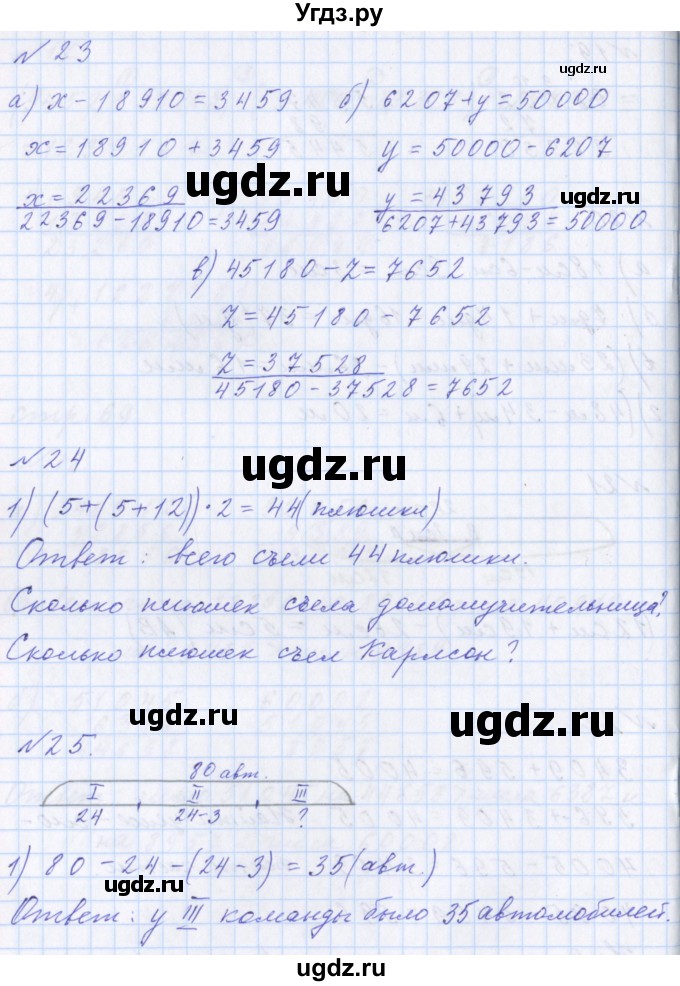 Угдз.ру
№ 23
угдз.ру
а) x - 18910 = 3459 б) 6207 + y = 50000
x = 18910 + 3459 y = 50000 - 6207
ugdz.ru
x = 22369 y = 43793
ugdz.ru
22369 - 18910 = 3459 6207 + 43793 = 50000
в) 45180 - z = 7652
z = 45180 - 7652
ugdz.ru
z = 37528
45180 - 37528 = 7652
№ 24
ugdz.ru
1) (5 + (5 + 12)) · 2 = 44 (плюшки)
Ответ: всего съели 44 плюшки.
Сколько плюшек съела домомучительница?
Сколько плюшек съел Карлсон?
ugdz.ru
ugdz.ru
№ 25.
80 авт.
I II III
24 24-3 ?
1) 80 - 24 - (24 - 3) = 35 (авт.)
ugdz.ru
Ответ: у III команды было 35 автомобилей.
ugdz.ru